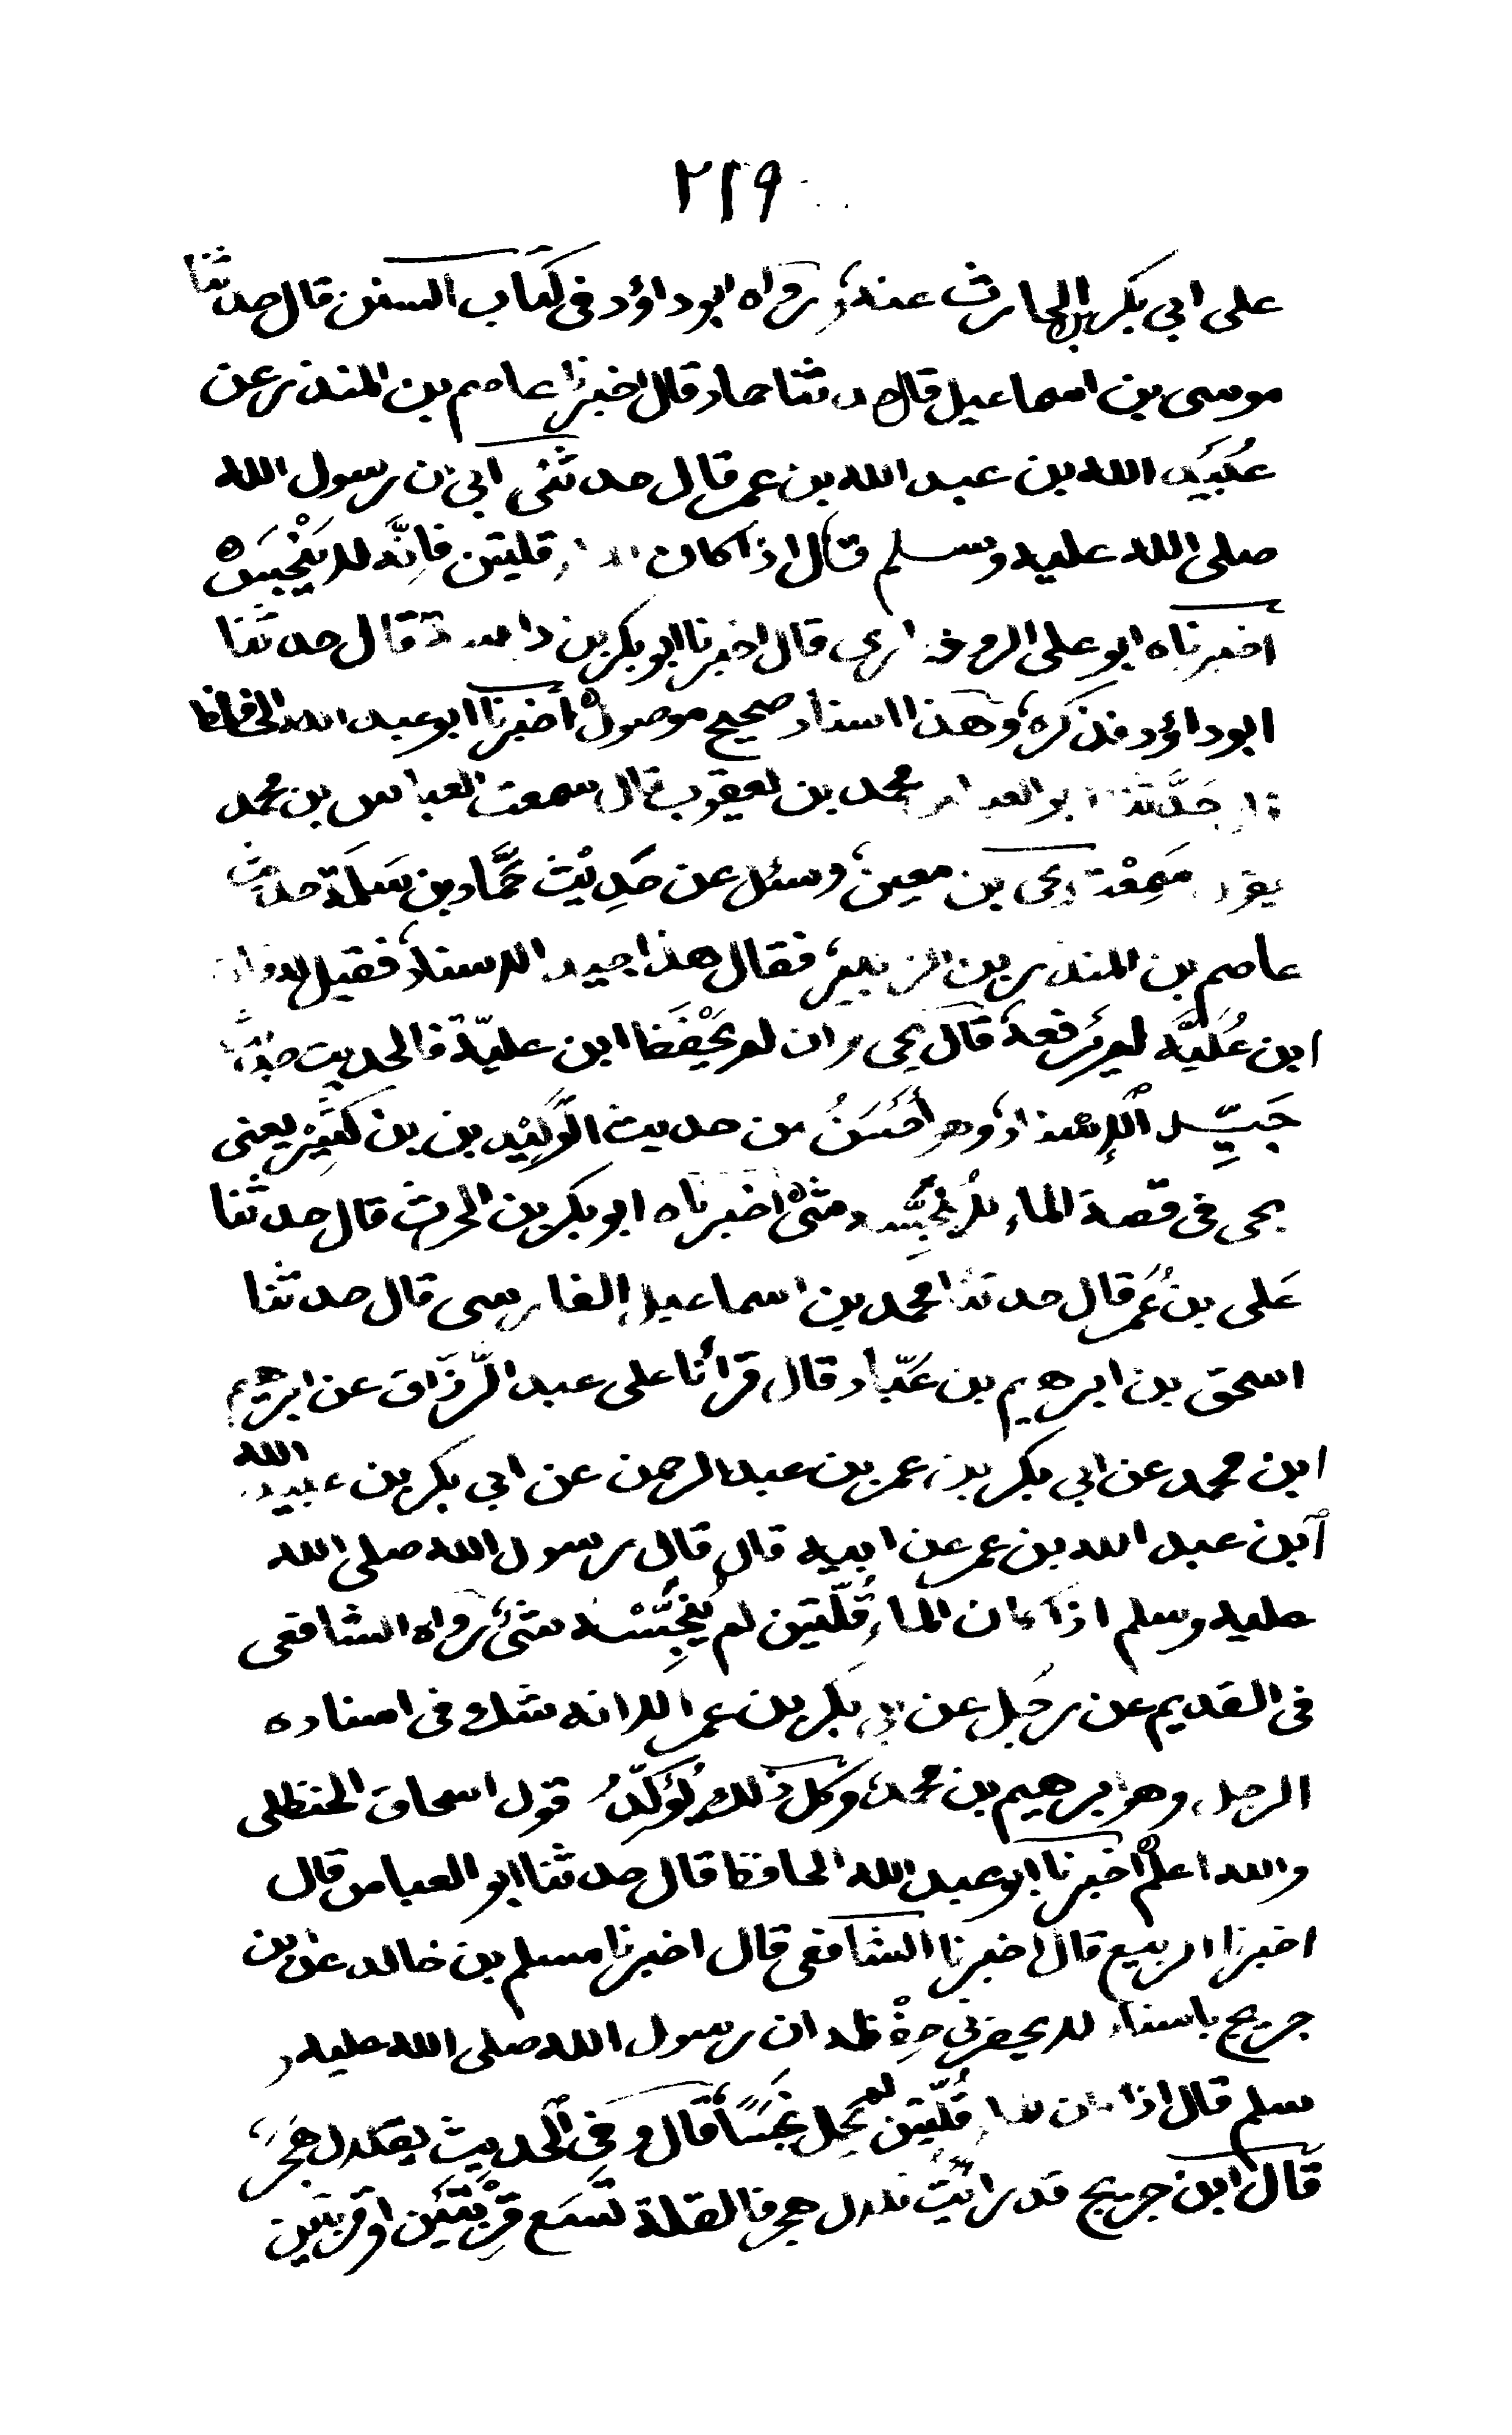 ٢٢٩
على ابي بكر بن الحارث عنه، ورواه ابو داؤد فى كتاب السنن قال حدثنا
موسى بن اسماعيل قال حدثنا حماد قال اخبرنا عاصم بن المنذر عن
عُبَيْد الله بن عبد الله بن عمر قال حدثنى ابى ن رسول الله
صلى الله عليه وسلم قال اذا كان الماء قلتين فاِنَّه لا يَنْجَسُ ه
اخبرناه ابو على الروذبارى قال اخبرنا ابو بكر بن داسة قال حدثنا
ابو داؤد فذكره، وهذا اسناد صحيح موصول ه اخبرنا ابو عبد الله الحافظ
قال حَدَّثنا ابو العباس محمد بن يعقوب قال سمعت العباس بن محمد
يقول سَمِعْت يحى بن معين، وسئل عن حَدِيْث حَمَّاد بن سَلَمَة حديث
عاصم بن المنذر بن الزبير، فقال هذا جيد الاسناد، فقيل له فان
ابن عُلَيَّة لم يَرفعه، قال يحى وان لم يَحْفَظ ابن عليّة فالحديث حديث
جَيِّد الْإسناد، وهو أَحْسَنُ من حديث الْوَلِيْد بن بن كَثِيْر يعنى
يحى فى قصة الماء لا يُنَجِّسُه شئ ه اخبرناه ابو بكر بن الحرث قال حدثنا
عَلى بن عُمَر قال حدثنا محمد بن اسماعيل الفارسى قال حدثنا
اسحق بن ابرهيم بن عَبّاد قال قرأنا على عبد الرَّزَّاق عن ابرهيم
ابن محمد عن ابي بكر بن عمر بن عبد الرحمن عن ابي بكر بن عبيد الله
ابن عبد الله بن عمر عن ابيه قال قال رسول الله صلى الله
عليه وسلم اذا كان الماء قُلّتين لم يُنَجِّسْهُ شئ، رواه الشافعى
فى القديم عن رَجُل عن ابى بكر بن عمر الا انه شك فى اسناده
الرجل وهو ابرهيم بن محمد، وكل ذلك يُؤَكِّدُ قول اسحاق الحنظلى
والله اعلم ه اخبرنا ابو عبد الله الحافظ قال حدثنا ابو العباس قال
اخبرنا الربيع قال اخبرنا الشافعى قال اخبرنا مسلم بن خالد عن بن
جريج باسناد لا يحضرنى حِفْظه ان رسول الله صلى الله عليه و
سلم قال اذا كان الماء قُلّتين لم يحمل نَجَسًا، قال وفى الْحديث بقلال هَجَر،
قال ابن جريج قد رأيتُ قلال هجر فالقلة تَسَع قِرْبَتَيْن او قربتين